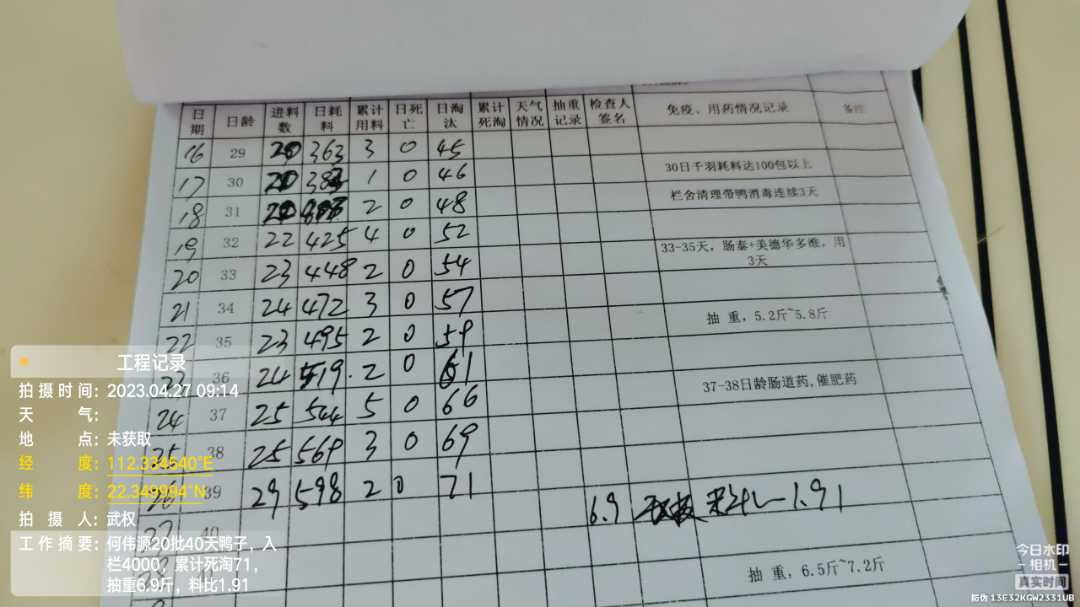 日期 日龄 进料数 日耗料 累计用料 日死亡 日淘汰 累计死淘 天气情况 抽重记录 检查人签名 免疫、用药情况记录 备注
16 29 20 363 3 0 45
30日千羽耗料达100包以上
17 30 20 383 1 0 46
栏舍清理带鸭消毒连续3天
18 31 20 2 0 48
19 32 22 425 4 0 52
33-35天，肠泰+美德华多维，用3天
20 33 23 448 2 0 54
21 34 24 472 3 0 57
抽重，5.2斤~5.8斤
22 35 23 495 2 0 59
36 24 519. 2 0 61
37-38日龄肠道药,催肥药
24 37 25 544 5 0 66
25 38 25 569 3 0 69
26 39 29 598 2 0 71
6.9 1.91
27 40
抽重，6.5斤~7.2斤
工程记录
拍摄时间：2023.04.27 09:14
天气：
地点：未获取
经度：112.334540°E
纬度：22.349994°N
拍摄人：武权
工作摘要：何伟源20批40天鸭子，入
栏4000，累计死淘71，
抽重6.9斤，料比1.91
今日水印
相机
真实时间
防伪 13E32KGW2331UB